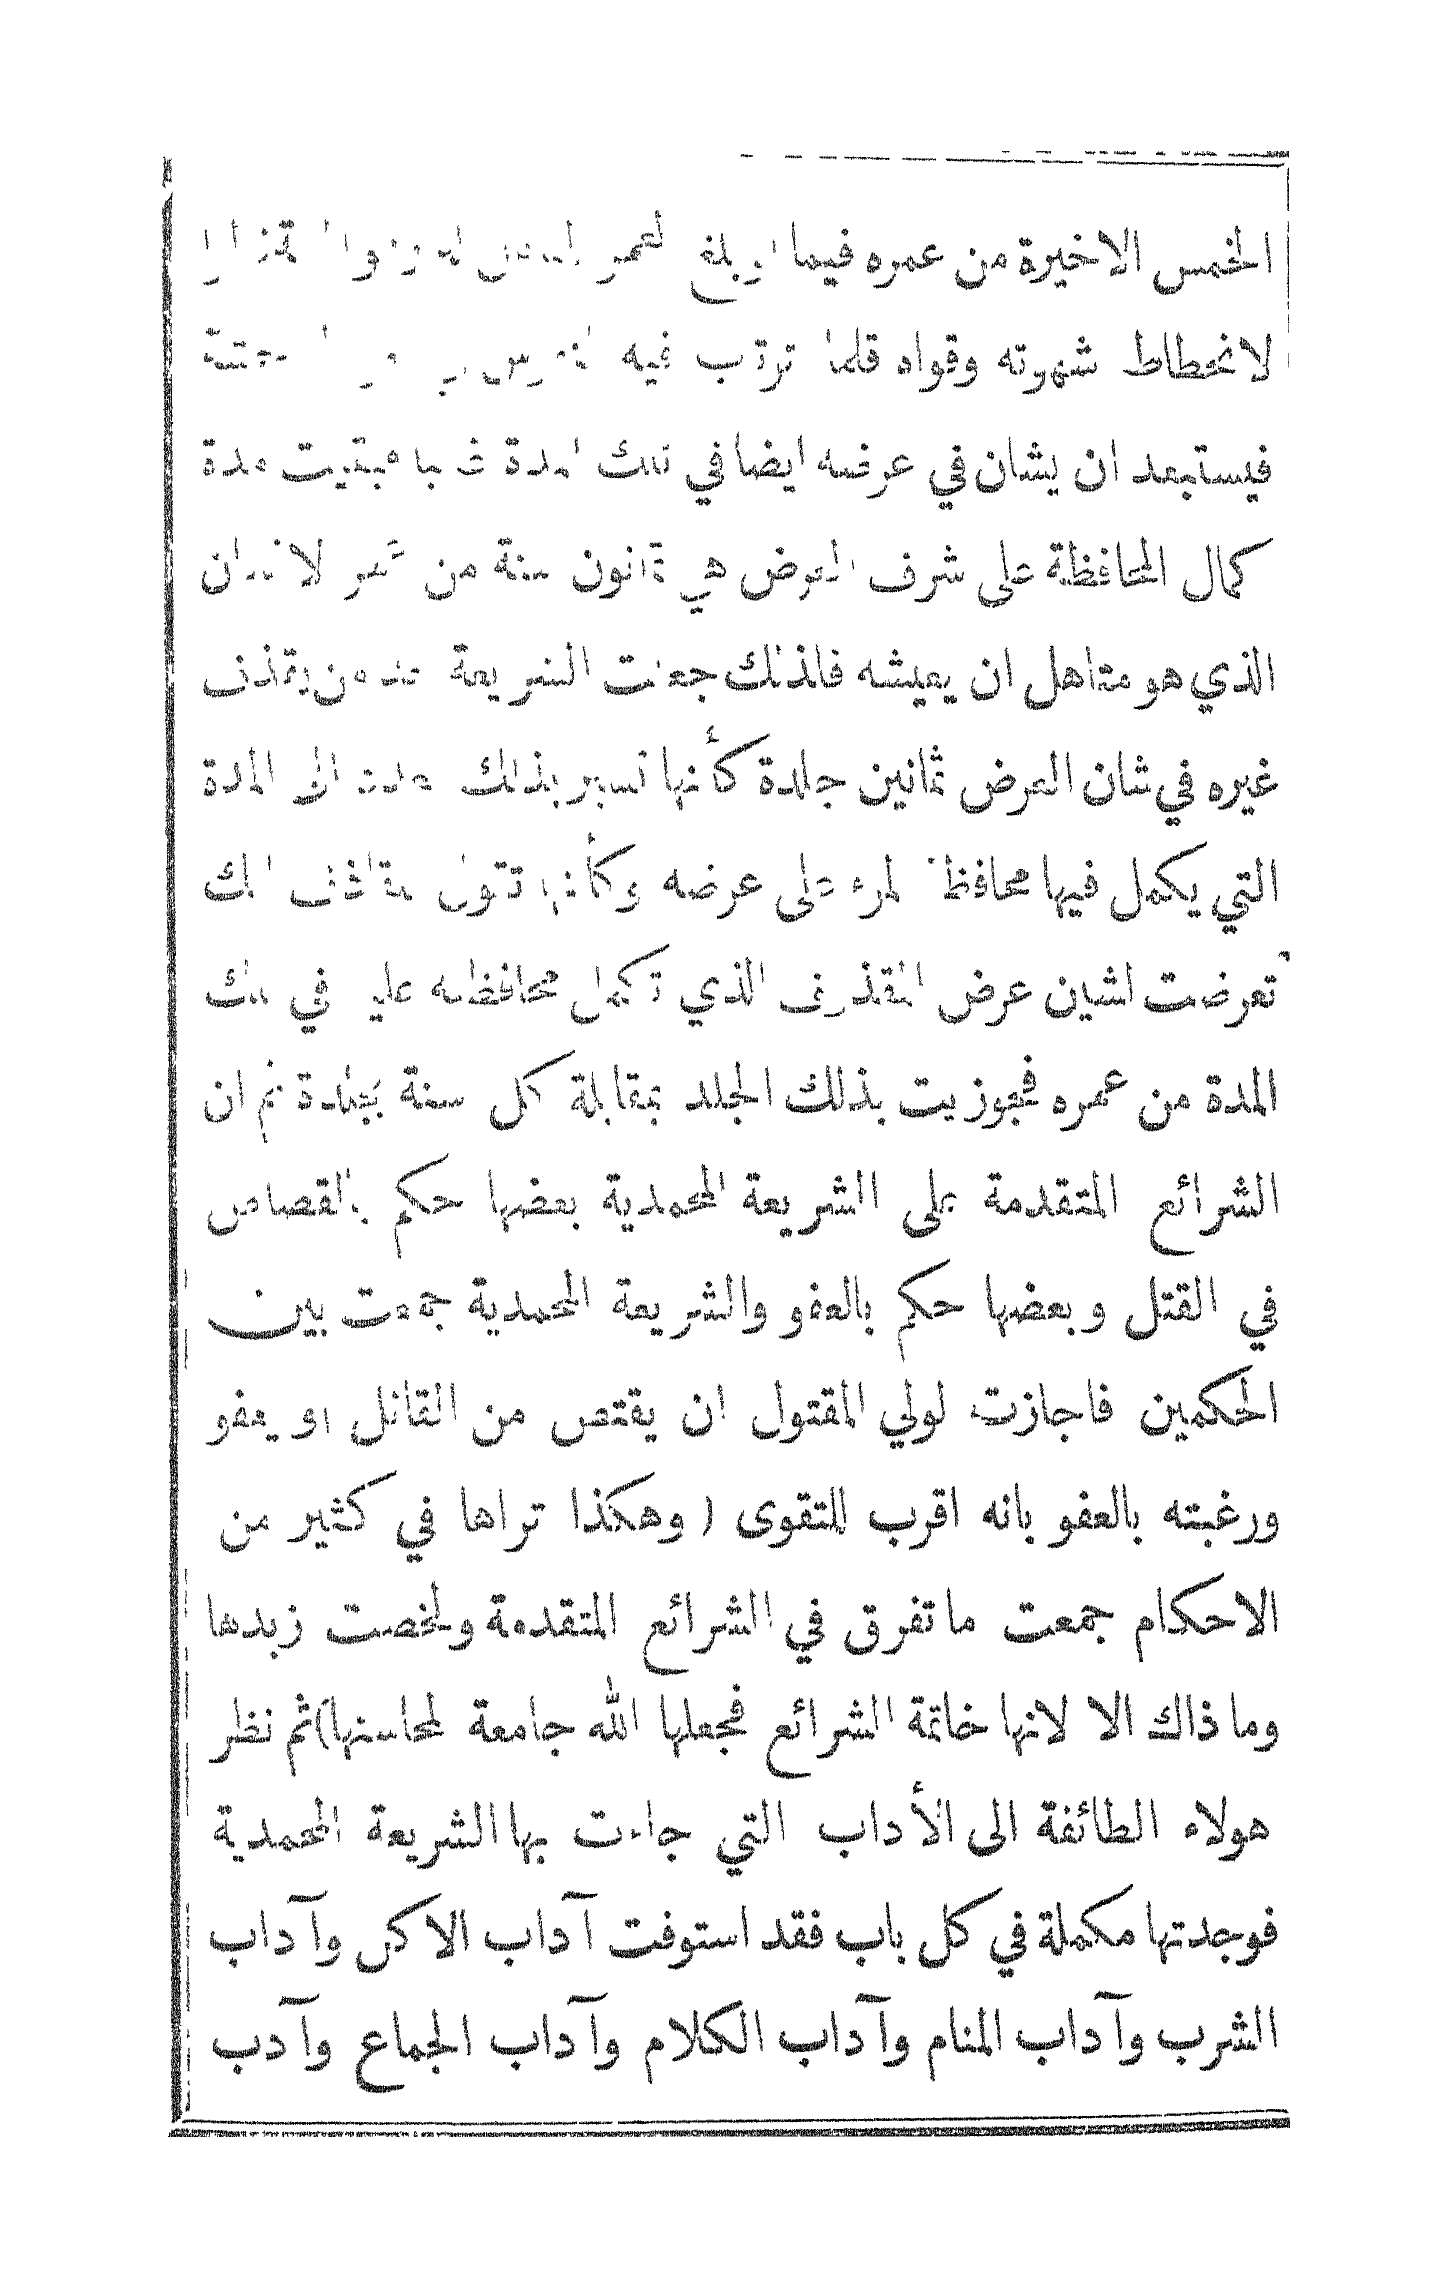 الخمس الاخيرة من عمره فيما لو بلغ
لانحطاط شهوته وقواه قلما ترتاب فيه
فيستبعد ان يشان في عرضه ايضا في تلك المدة فبقيت مدة
كمال المحافظة على شرف العرض هي ثمانون سنة من عمر الانسان
الذي هو متاهل ان يعيشه فلذلك جعلت الشريعة حد من يقذف
غيره في شان العرض ثمانين جلدة كأنها تسير بذلك الى المدة
التي يكمل فيها محافظة المرء على عرضه وكأنها تقول للقاذف انك
تعرضت لشين عرض المقذوف الذي تكمل محافظته عليه في تلك
المدة من عمره فجوزيت بذلك الجلد بمقابلة كل سنة بجلدة ثم ان
الشرائع المتقدمة على الشريعة المحمدية بعضها حكم بالقصاص
في القتل وبعضها حكم بالعفو والشريعة المحمدية جمعت بين
الحكمين فاجازت لولي المقتول ان يقتص من القاتل او يعفو
ورغبته بالعفو بانه اقرب للتقوى ( وهكذا تراها في كثير من
الاحكام جمعت ما تفرق في الشرائع المتقدمة ولخصت زبدها
وما ذاك الا لانها خاتمة الشرائع فجعلها الله جامعة لمحاسنها) ثم نظر
هولاء الطائفة الى الأداب التي جاءت بها الشريعة المحمدية
فوجدتها مكملة في كل باب فقد استوفت آداب الاكل وآداب
الشرب وآداب المنام وآداب الكلام وآداب الجماع وآدب